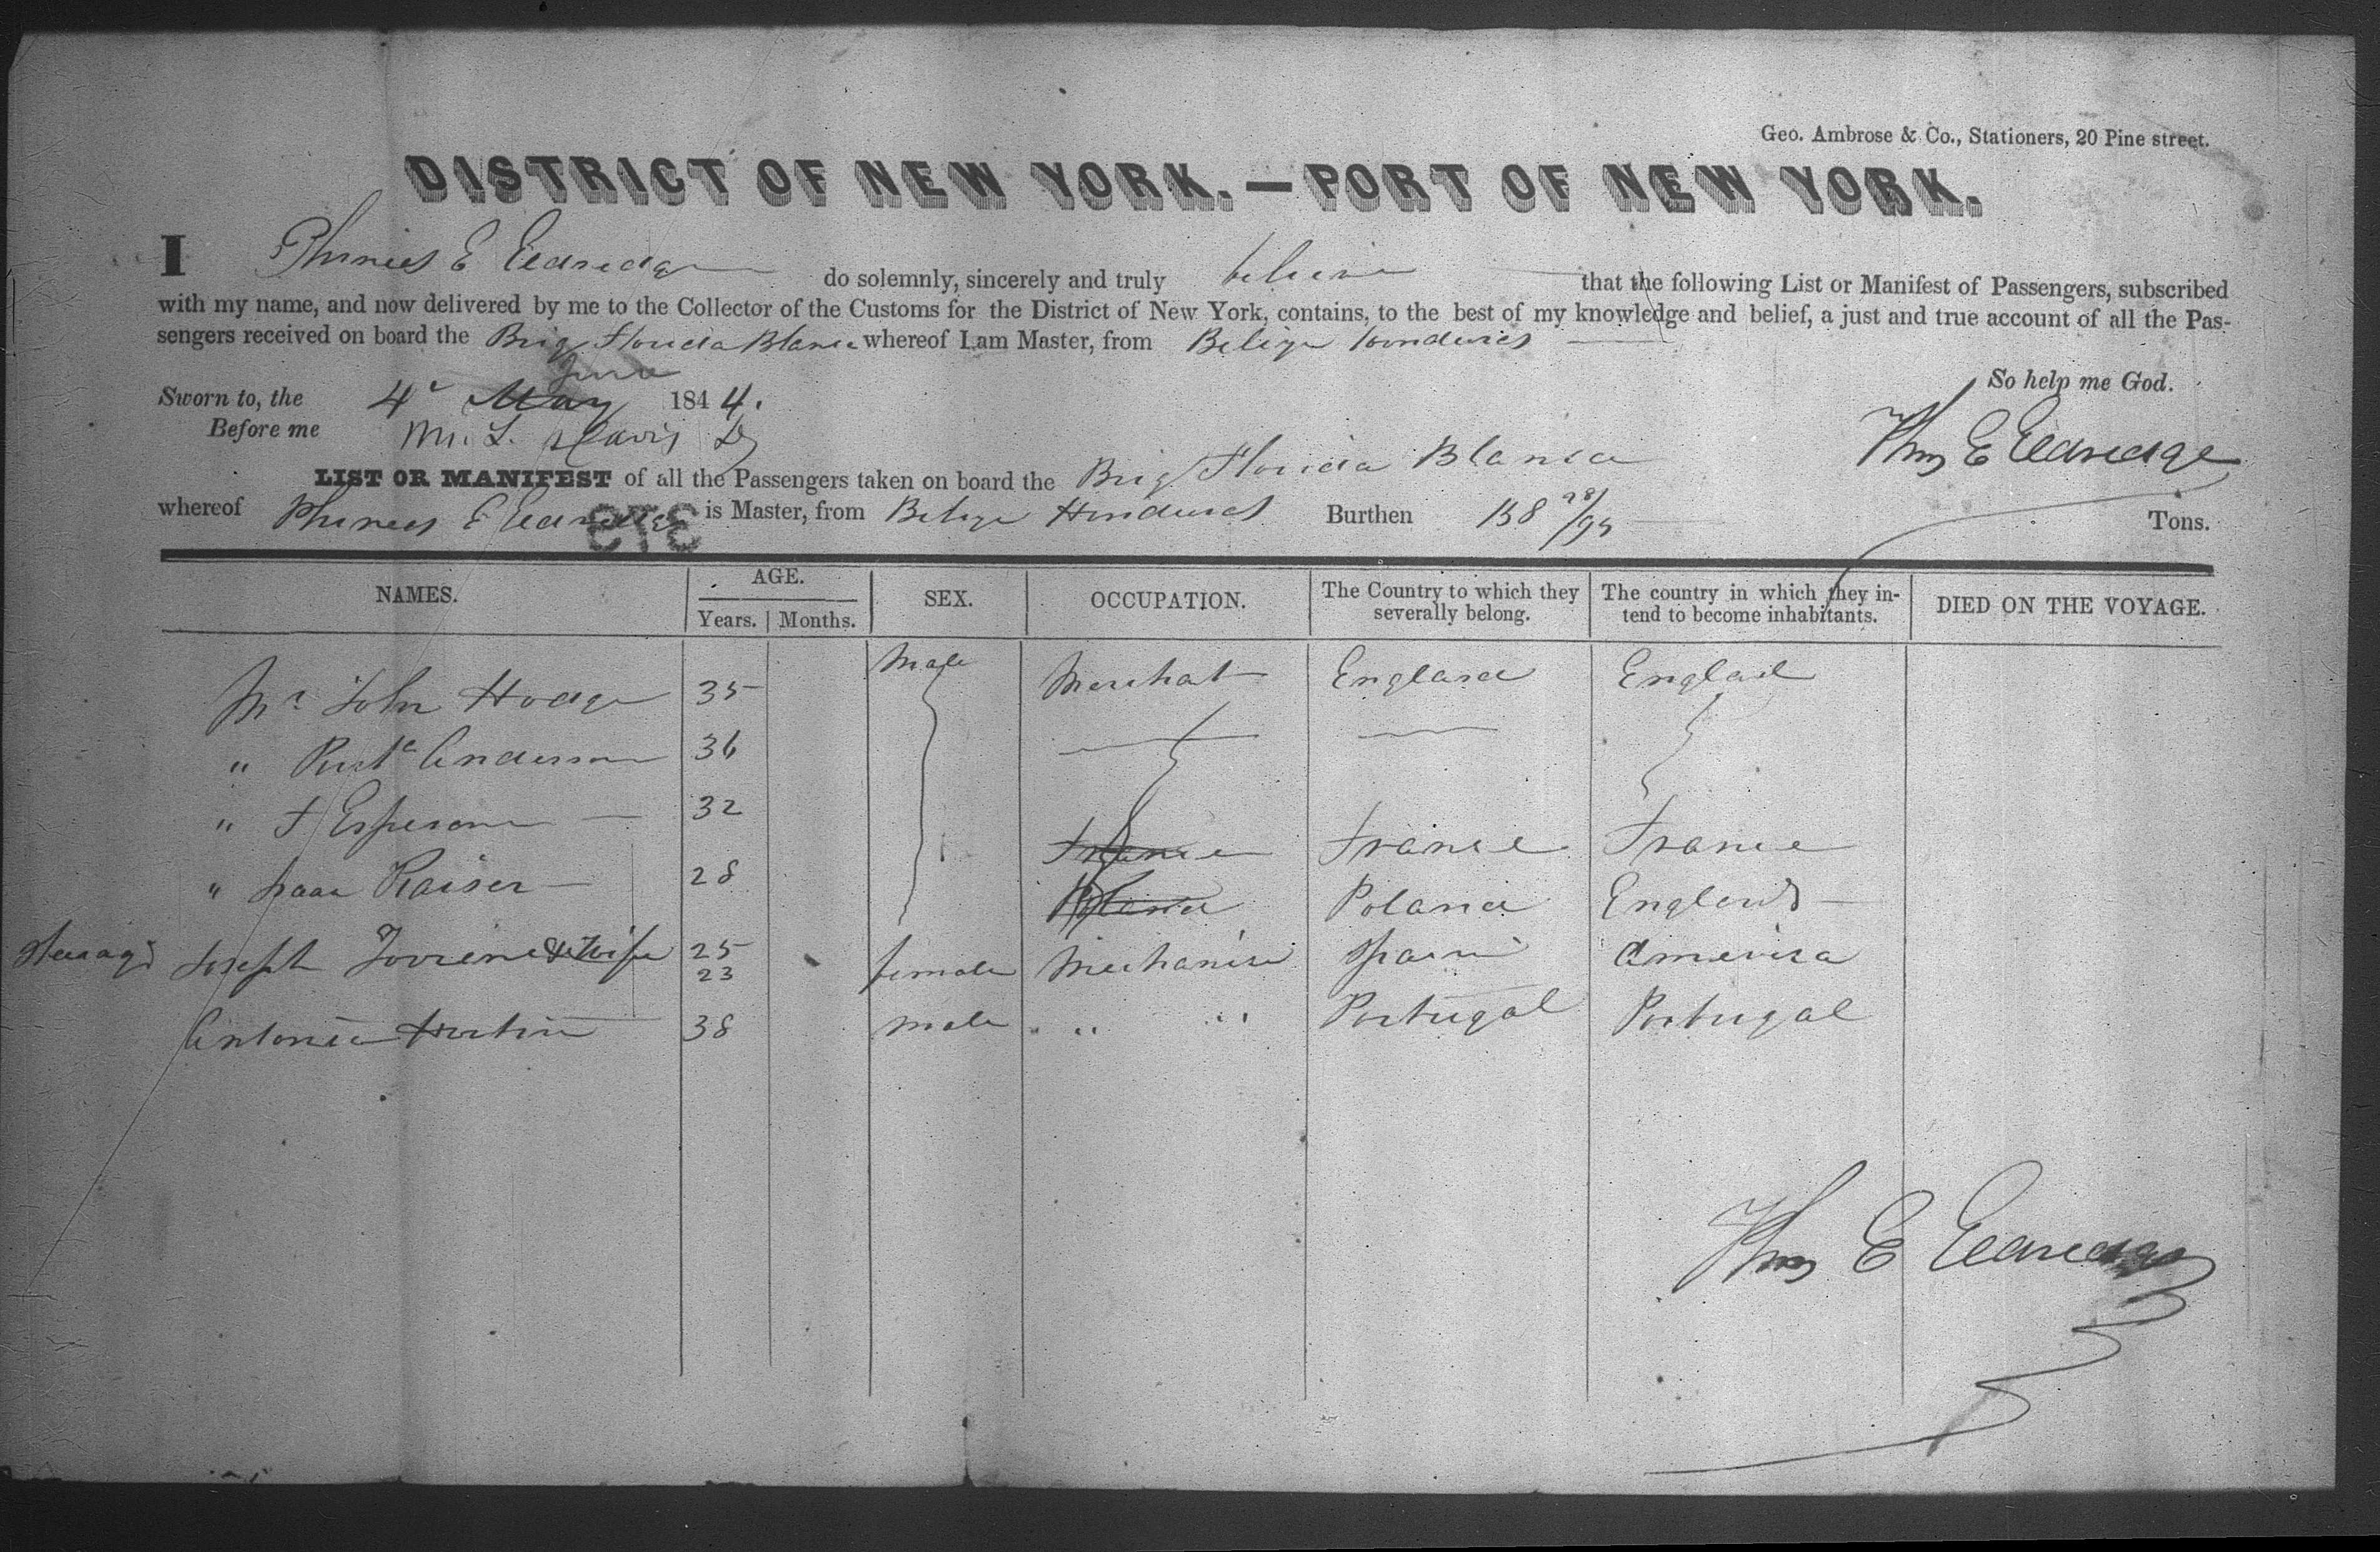 Geo. Ambrose & Co., Stationers, 20 Pine street.
DISTRICT OF NEW YORK.—PORT OF NEW YORK.
I Phineas E Eldredge do solemnly, sincerely and truly that the following List or Manifest of Passengers, subscribed
with my name, and now delivered by me to the Collector of the Customs for the District of New York, contains, to the best of my knowledge and belief, a just and true account of all the Pas-
sengers received on board the Brig Florida Blanca whereof I am Master, from Belize Honduras
So help me God.
June
Sworn to, the 4 May 1844.
Before me M. L. Davis
Phins E Eldredge
LIST OR MANIFEST of all the Passengers taken on board the Brig Florida Blanca
whereof Phineas E Eldredge is Master, from Belize Honduras Burthen Tons.
373
NAMES. AGE. SEX. OCCUPATION. The Country to which they severally belong. The country in which they in-tend to become inhabitants. DIED ON THE VOYAGE.
Years. Months.
Mr John Hodge 35 Male Merchat England Englad
" Anderson 36
" F 32 France France France
" Isaac Kaiser 28 Poland Poland England
Joseph & Wife 25 23 female Mechanic Spain America
Antonio 38 male " " Portugal Portugal
Phins E Eldredge